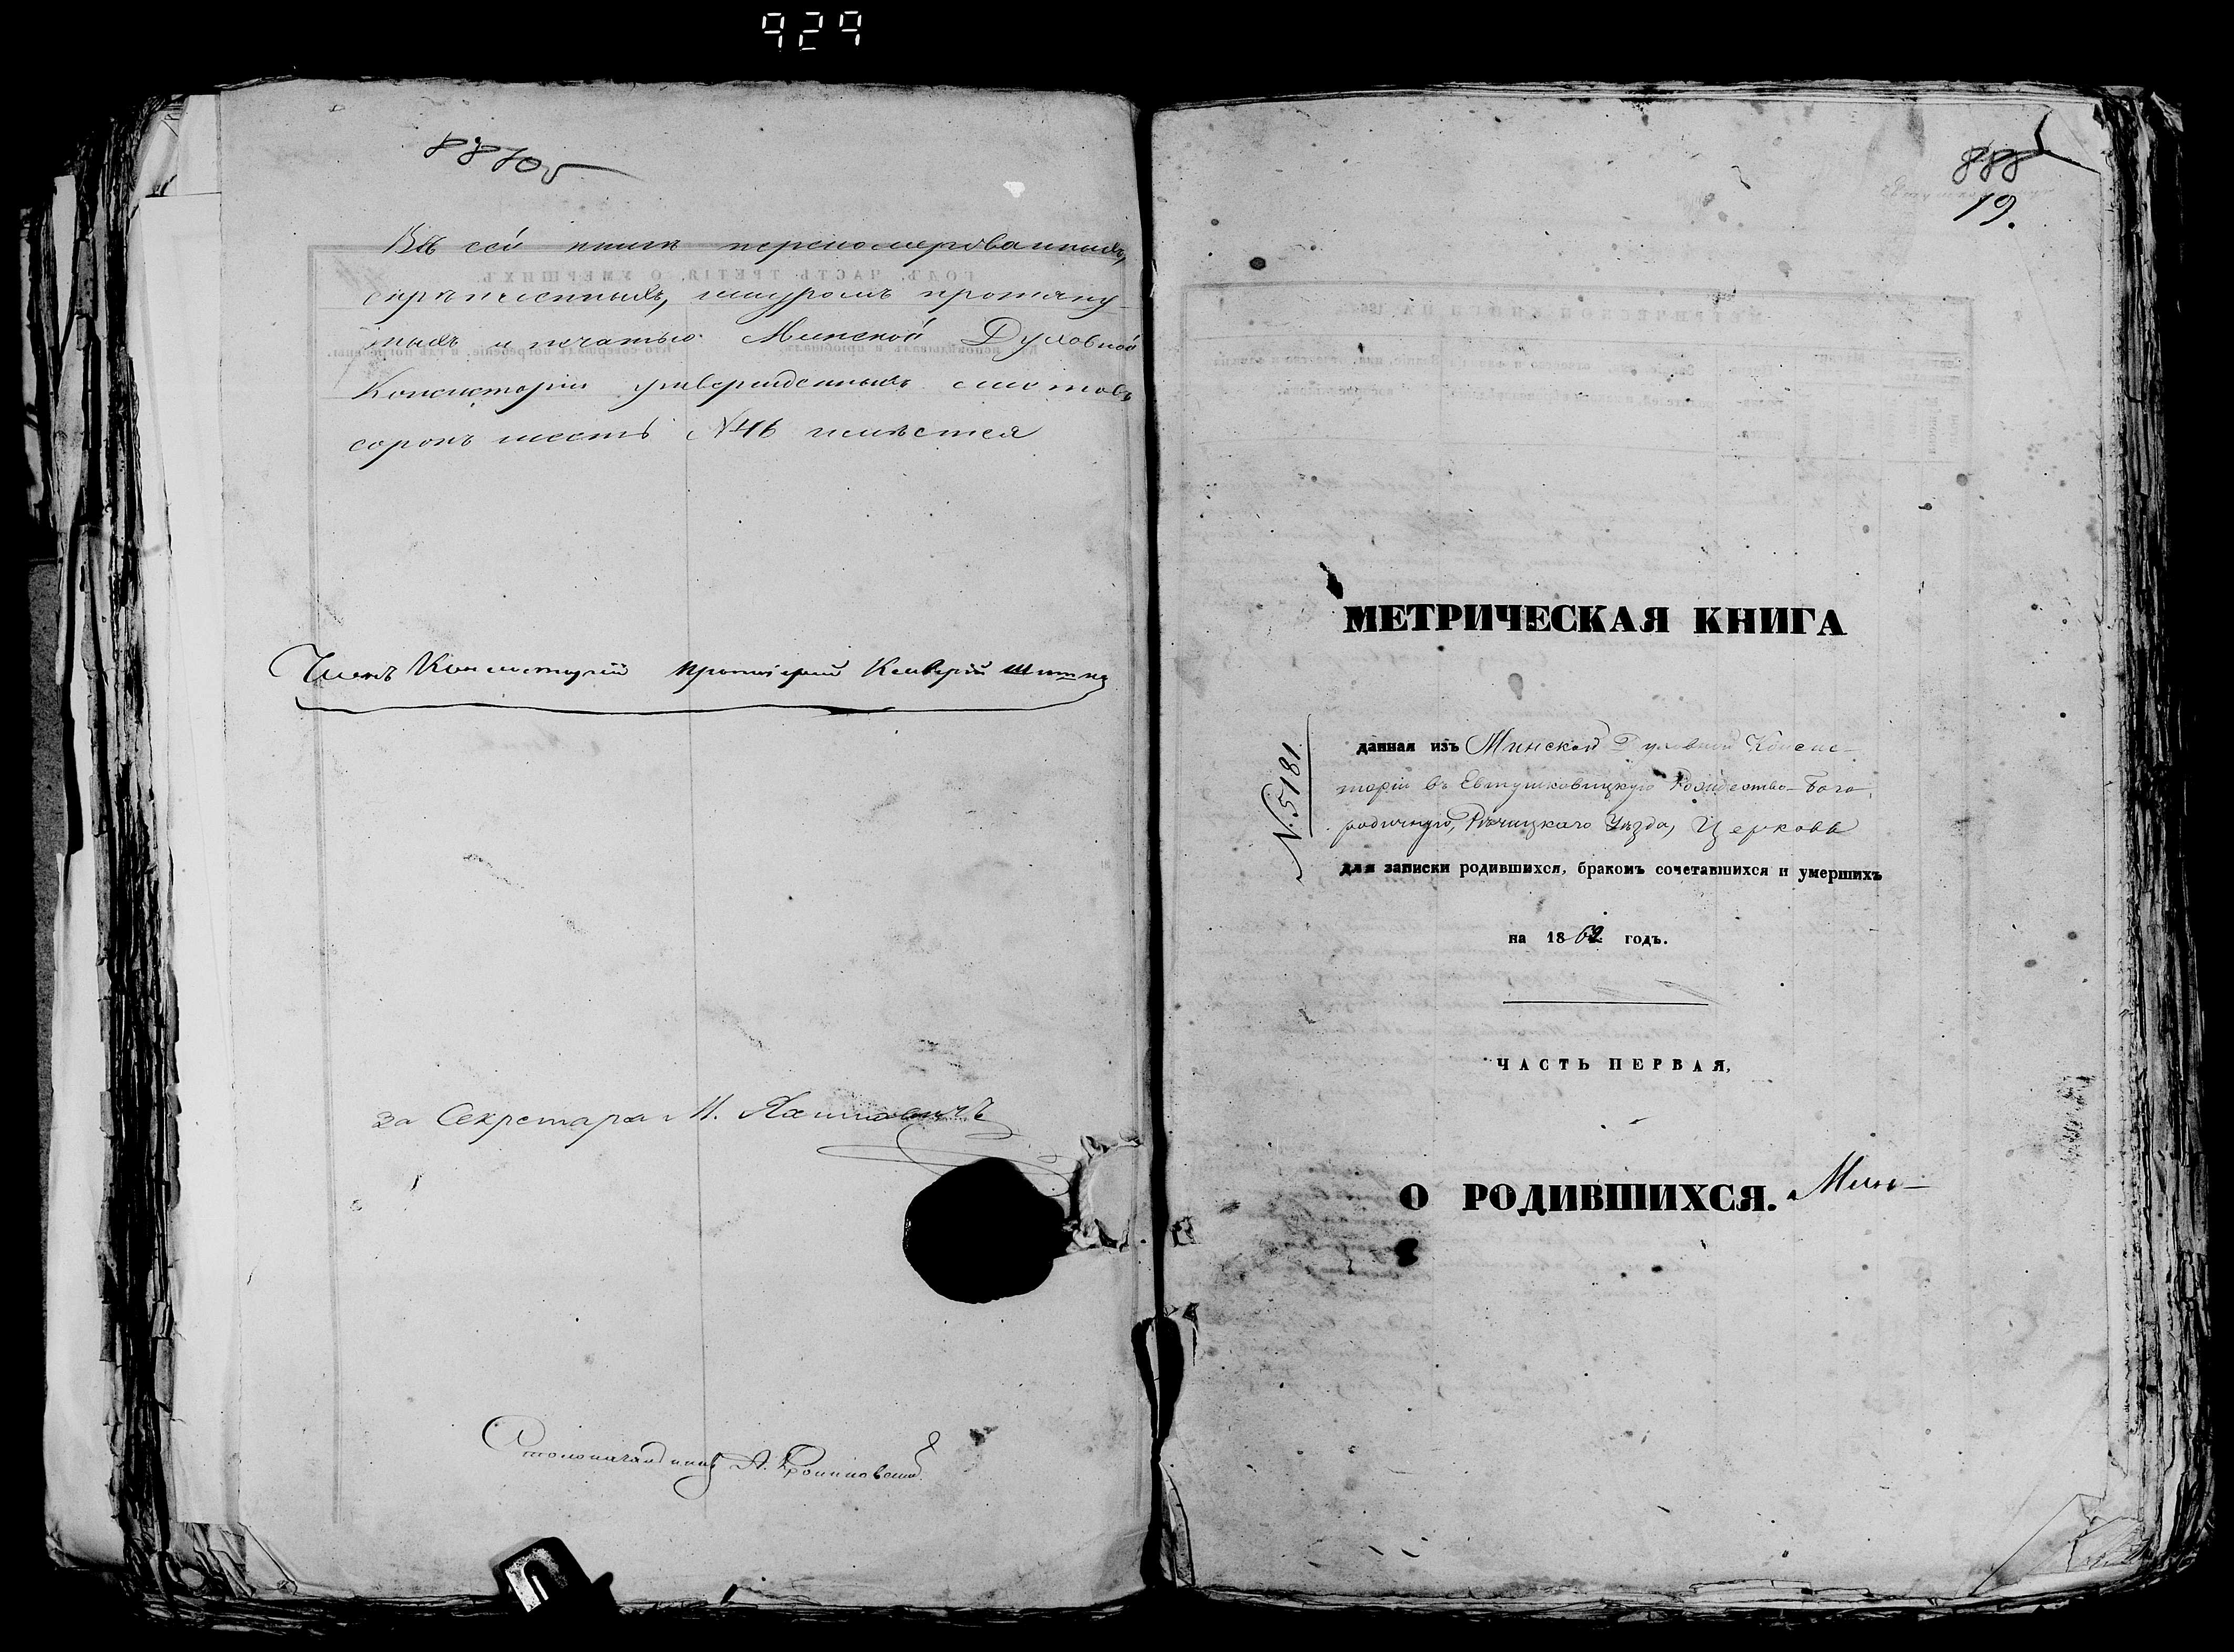 929
887об
Въ сей книгѣ перекомерованныхъ,
скрѣпленныхъ, шнуромъ протяну-
тыхъ и печатью Минской Духовной
Консисторіи утвержденныхъ листовъ
сорокъ шесть №46 имѣется
Членъ Консисторіи Протоіерей
за Секретаря
Столоначальникъ А.
888
19.
МЕТРИЧЕСКАЯ КНИГА
№ 5181.
данная изъ Минской Духовной Консис-
торіи въ Евтушковицкую Рождество-Бого-
родичную, Рѣчицкаго Уѣзда, Церковь
для записки родившихся, бракомъ сочетавшихся и умершихъ
на 1862 годъ.
ЧАСТЬ ПЕРВАЯ,
О РОДИВШИХСЯ. Мин-